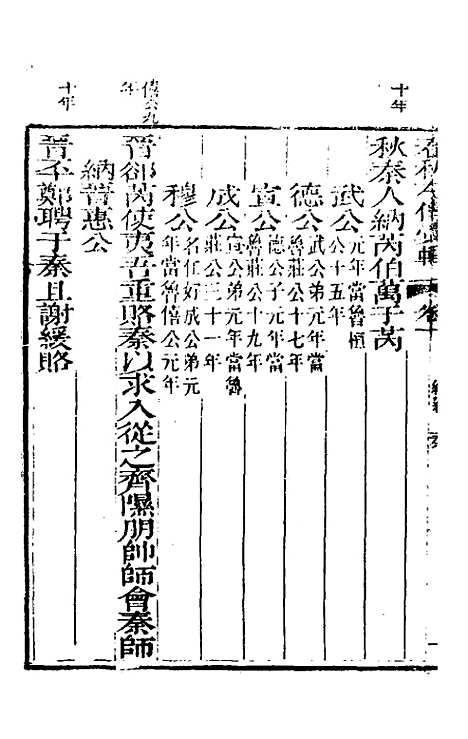 十年
秋秦人納芮伯萬于芮
武公
元年當魯桓
公十五年
德公
武公弟元年當
魯莊公十七年
宣公
德公子元年當
魯莊公十九年
成公
宣公弟元年當魯
莊公三十一年
穆公
名任好成公弟元
年當魯僖公元年
僖公九
年
晉郤芮使夷吾重賂秦以求入從之齊隰朋帥師會秦師
納晉惠公
十年
晉丕鄭聘于秦且謝緩賂